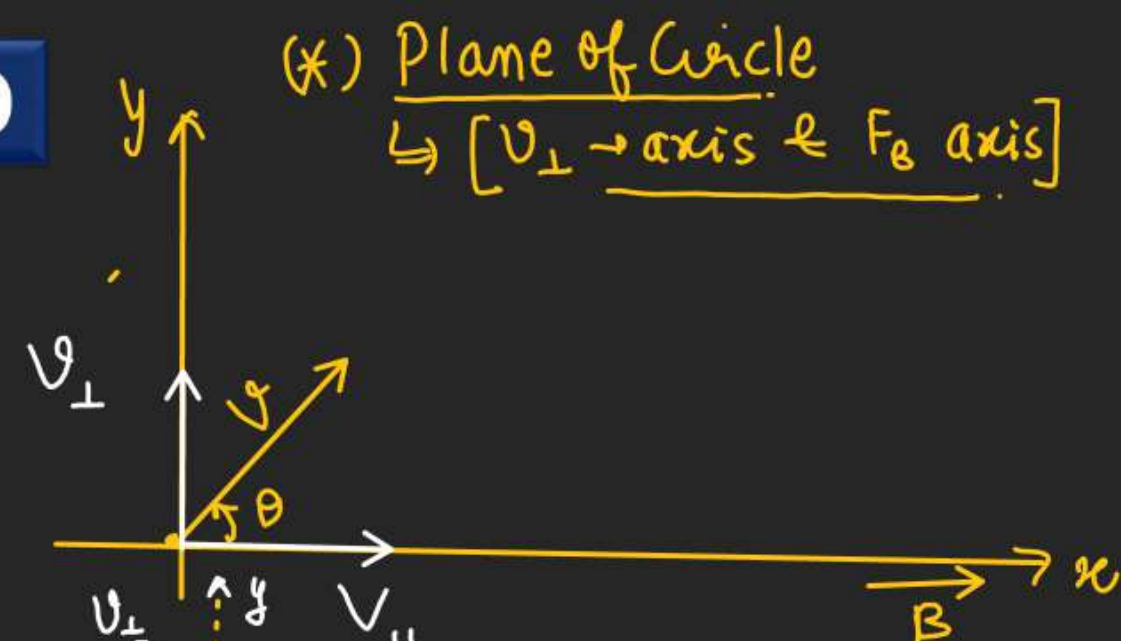 (*) Plane of Circle
↳ [v⊥ → axis & F_B axis]
y
v⊥
v
θ
x
B
v⊥ y V॥